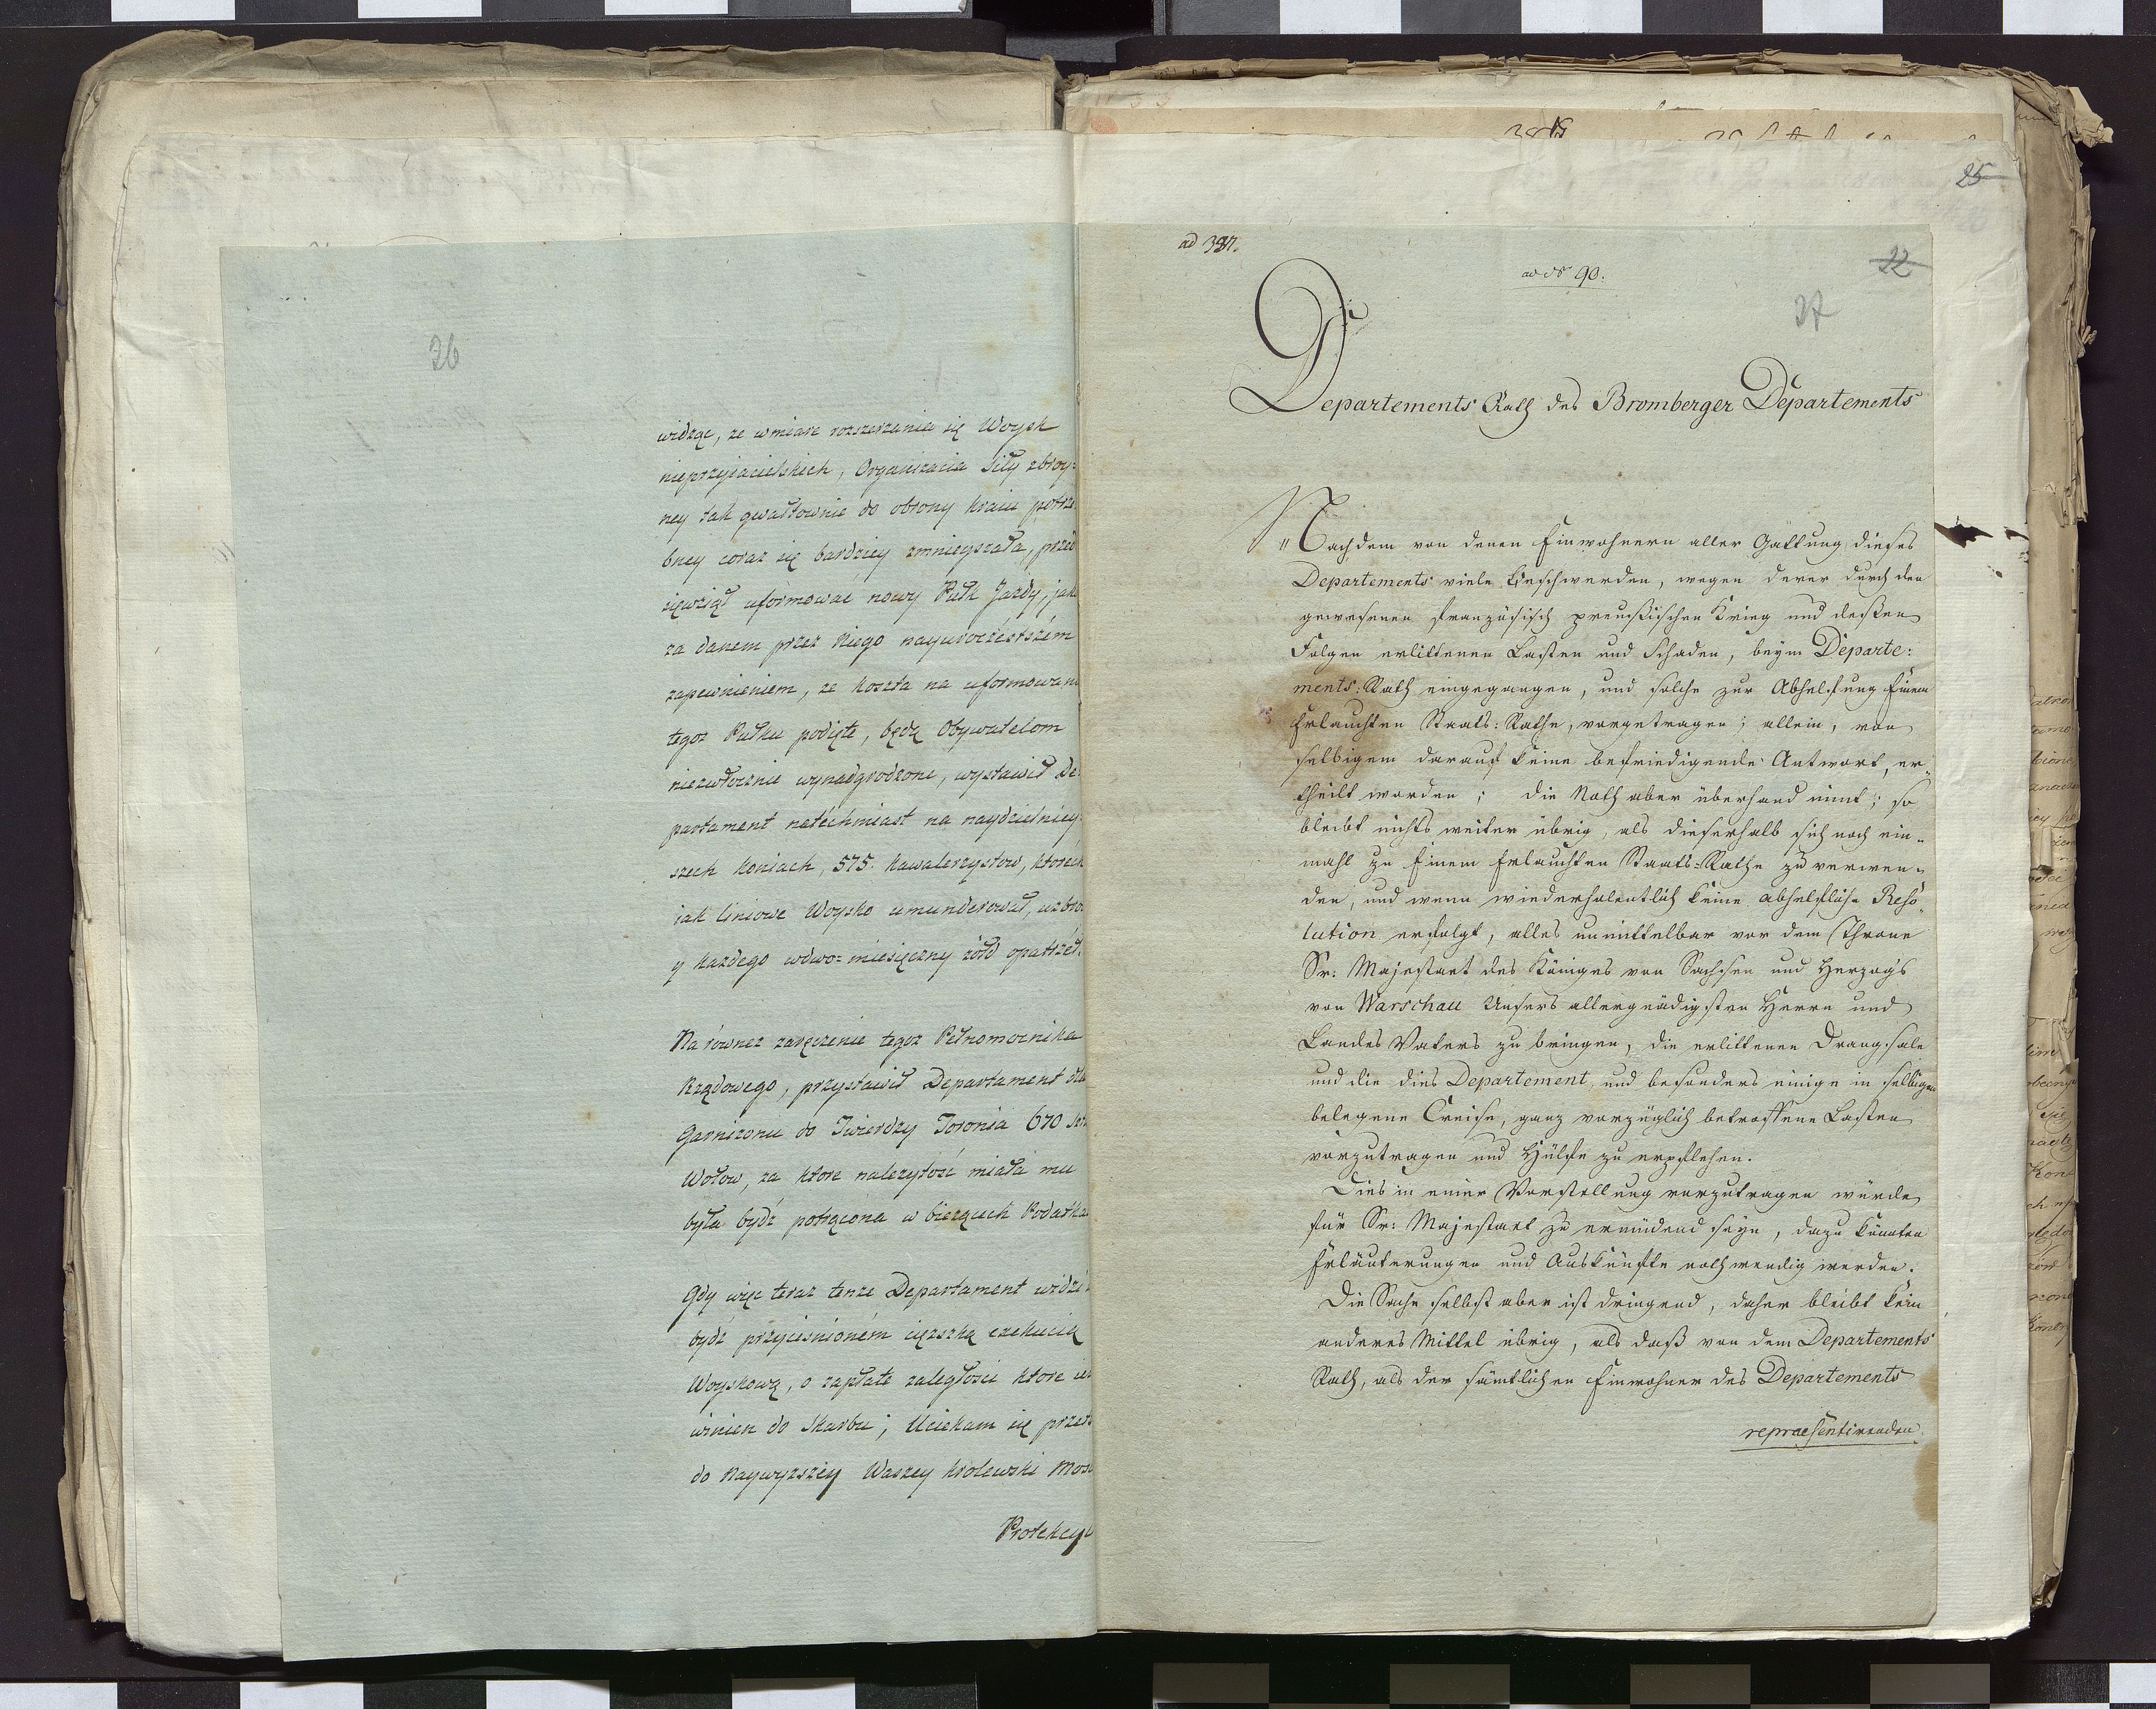 26
widząc, ze w miarę rozszerzania się Woysk
nieprzyiacielskich, Organizacia siły zbroy=
ney tak gwałtownie do obrony kraiu potrze
bney coraz się bardziey zmnieyszała, przed
sięwziął uformować nowy Pułk Jazdy, jakoż
za danem przez niego nayuroczéstszém
zapewnieniem, ze koszta na uformowani
tegoz Pułku podięte, będą Obywatelom
niezwłocznie wynadgrodzone, wystawił De=
partament natéchmiast na naydzielniey=
szech koniach, 575. kawalerzystow, ktoréch
jak liniowe Woysko umunderował, uzbro
y kazdego wdwo=miesięczny żołd opatrzéł.
Na równez zaręczenie tegoz Pełnomocnika
Rządowego, przystawił Departament dla
Garnizonu do Twierdzy Toronia 670 szt
Wołow, za ktore nalezytość miała mu
była bydź potrącona w bieżących Podatka
Gdy więc teraz tenze Departament widzi
bydź przyciśnioném cięzszką exekucią
Woyskową, o zapłatę zaległości ktore ie
winien do Skarbu; Uciekam się przeto
do naywyzszéy Waszey krolewski Mos
Protekcyi
25
ad 387.
ad No 90.
22
27
Departements Rath des Bromberger Departements
Nachdem von denen Einwohnern aller Gattung dieses
Departements viele Beschwerden, wegen derer durch den
gewesenen französisch preußischen Krieg und deßen
Folgen erlittenen Lasten und Schaden, beym Departe:
ments: Rath eingegangen, und solche zur Abhelfung Einem
Erlauchten Staats: Rathe, vorgetragen; allein, von
selbigem darauf keine befriedigende Antwort, er„
theilt worden; die Noth aber überhand nimt; so
bleibt nichts weiter übrig, als dieserhalb sich noch ein„
mahl zu Einem Erlauchten Staats=Rathe zu verwen„
den, und wenn wiederholentlich keine abhelfliche Reso„
lution erfolgt, alles unmittelbar vor dem Throne
Sr: Majestaet des Königes von Sachsen und Herzogs
von Warschau Unsers allergnädigsten Herrn und
Landes Vaters zu bringen, die erlittenen Drangsale
und die dies Departement, und besonders einige in selbigem
belegene Creise, ganz vorzüglich betroffene Lasten
vorzutragen und Hülfe zu erpflehen.
Dies in einer Vorstellung vorzutragen würde
für Sr: Majestaet zu ermüdend seyn, dazu könnten
Erläuterungen und Auskünfte nothwendig werden.
Die Sache selbst aber ist dringend, daher bleibt kein
anderes Mittel übrig, als daß von dem Departements
Rath, als der sämtlichen Einwohner des Departements
repraesentirenden